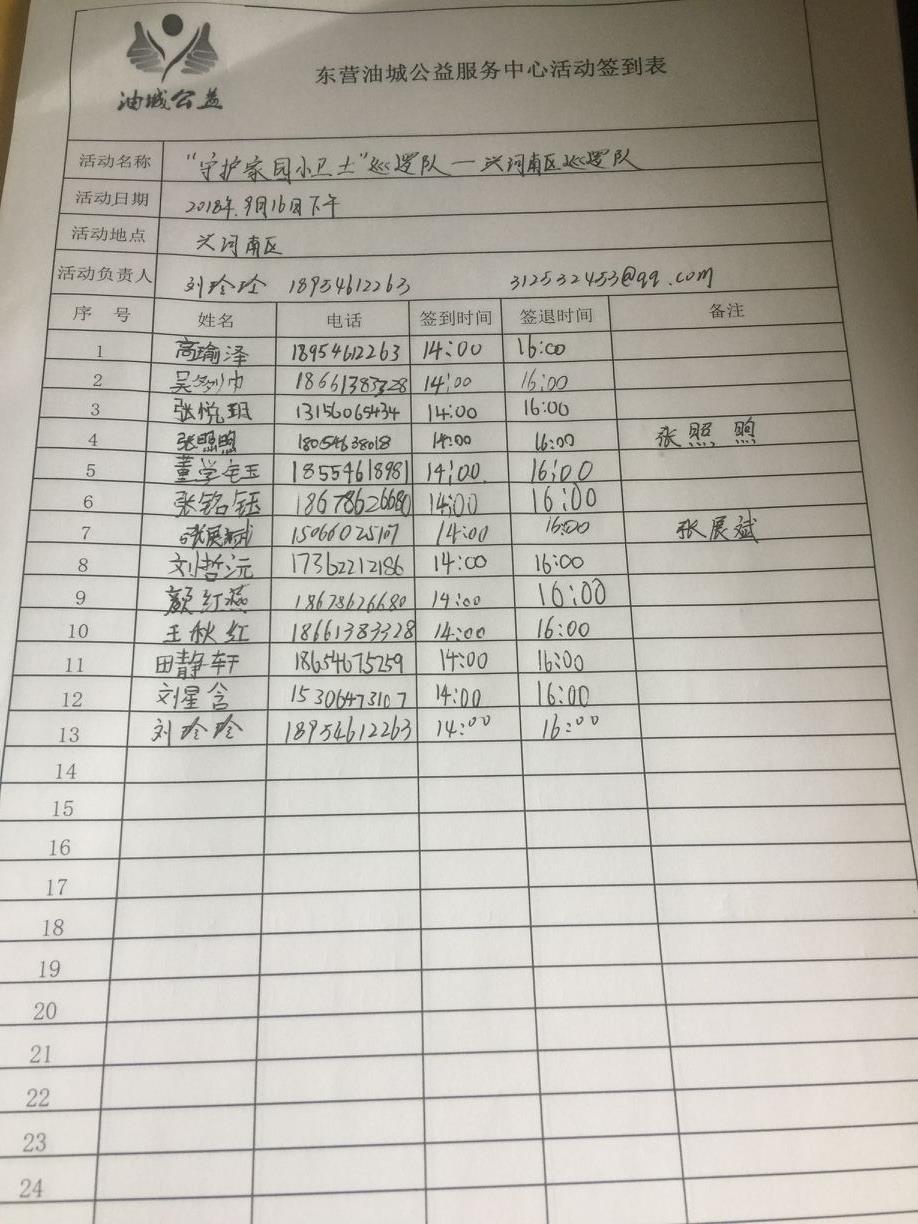 油城公益
东营油城公益服务中心活动签到表
活动名称 "守护家园小卫士"巡逻队—兴河南区巡逻队
活动日期 2018年.9月16日下午
活动地点 兴河南区
活动负责人 刘玲玲 18954612263 312532453@qq.com
序号 姓名 电话 签到时间 签退时间 备注
1 高瑜泽 18954612263 14:00 16:00
2 吴 18661383328 14:00 16:00
3 张悦玥 13156065434 14:00 16:00
4 张照煦 18054638018 14:00 16:00 张照煦
5 董学 18554618981 14:00 16:00
6 张铭钰 18678626680 14:00 16:00
7 张展斌 15066025107 14:00 16:00 张展斌
8 刘哲沅 17362212186 14:00 16:00
9 颜红燕 18678626680 14:00 16:00
10 王秋红 18661383328 14:00 16:00
11 田静轩 18654675259 14:00 16:00
12 刘星含 15306473107 14:00 16:00
13 刘玲玲 18954612263 14:00 16:00
14
15
16
17
18
19
20
21
22
23
24